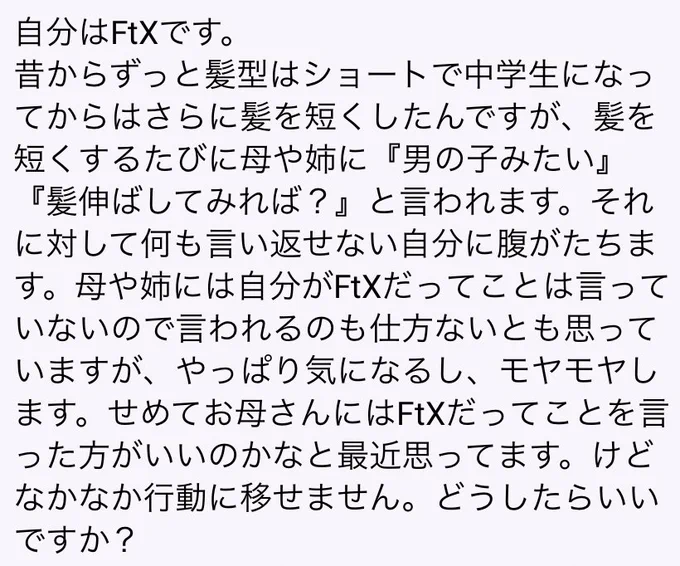 自分はFtXです。
昔からずっと髪型はショートで中学生になっ
てからはさらに髪を短くしたんですが、髪を
短くするたびに母や姉に『男の子みたい』
『髪伸ばしてみれば？』と言われます。それ
に対して何も言い返せない自分に腹がたちま
す。母や姉には自分がFtXだってことは言って
いないので言われるのも仕方ないとも思って
いますが、やっぱり気になるし、モヤモヤし
ます。せめてお母さんにはFtXだってことを言
った方がいいのかなと最近思ってます。けど
なかなか行動に移せません。どうしたらいい
ですか？